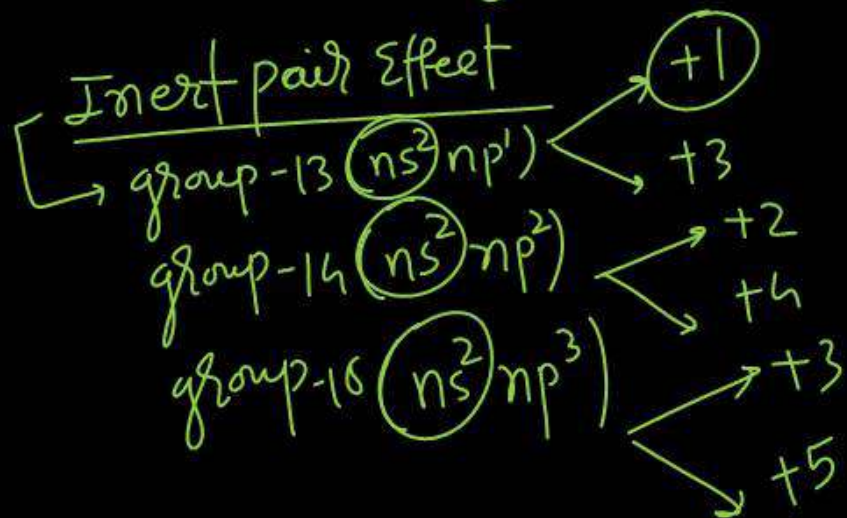 Inert pair Effect
group-13 (ns² np¹) +1
+3
group-14 (ns² np²) +2
+4
group-15 (ns² np³) +3
+5